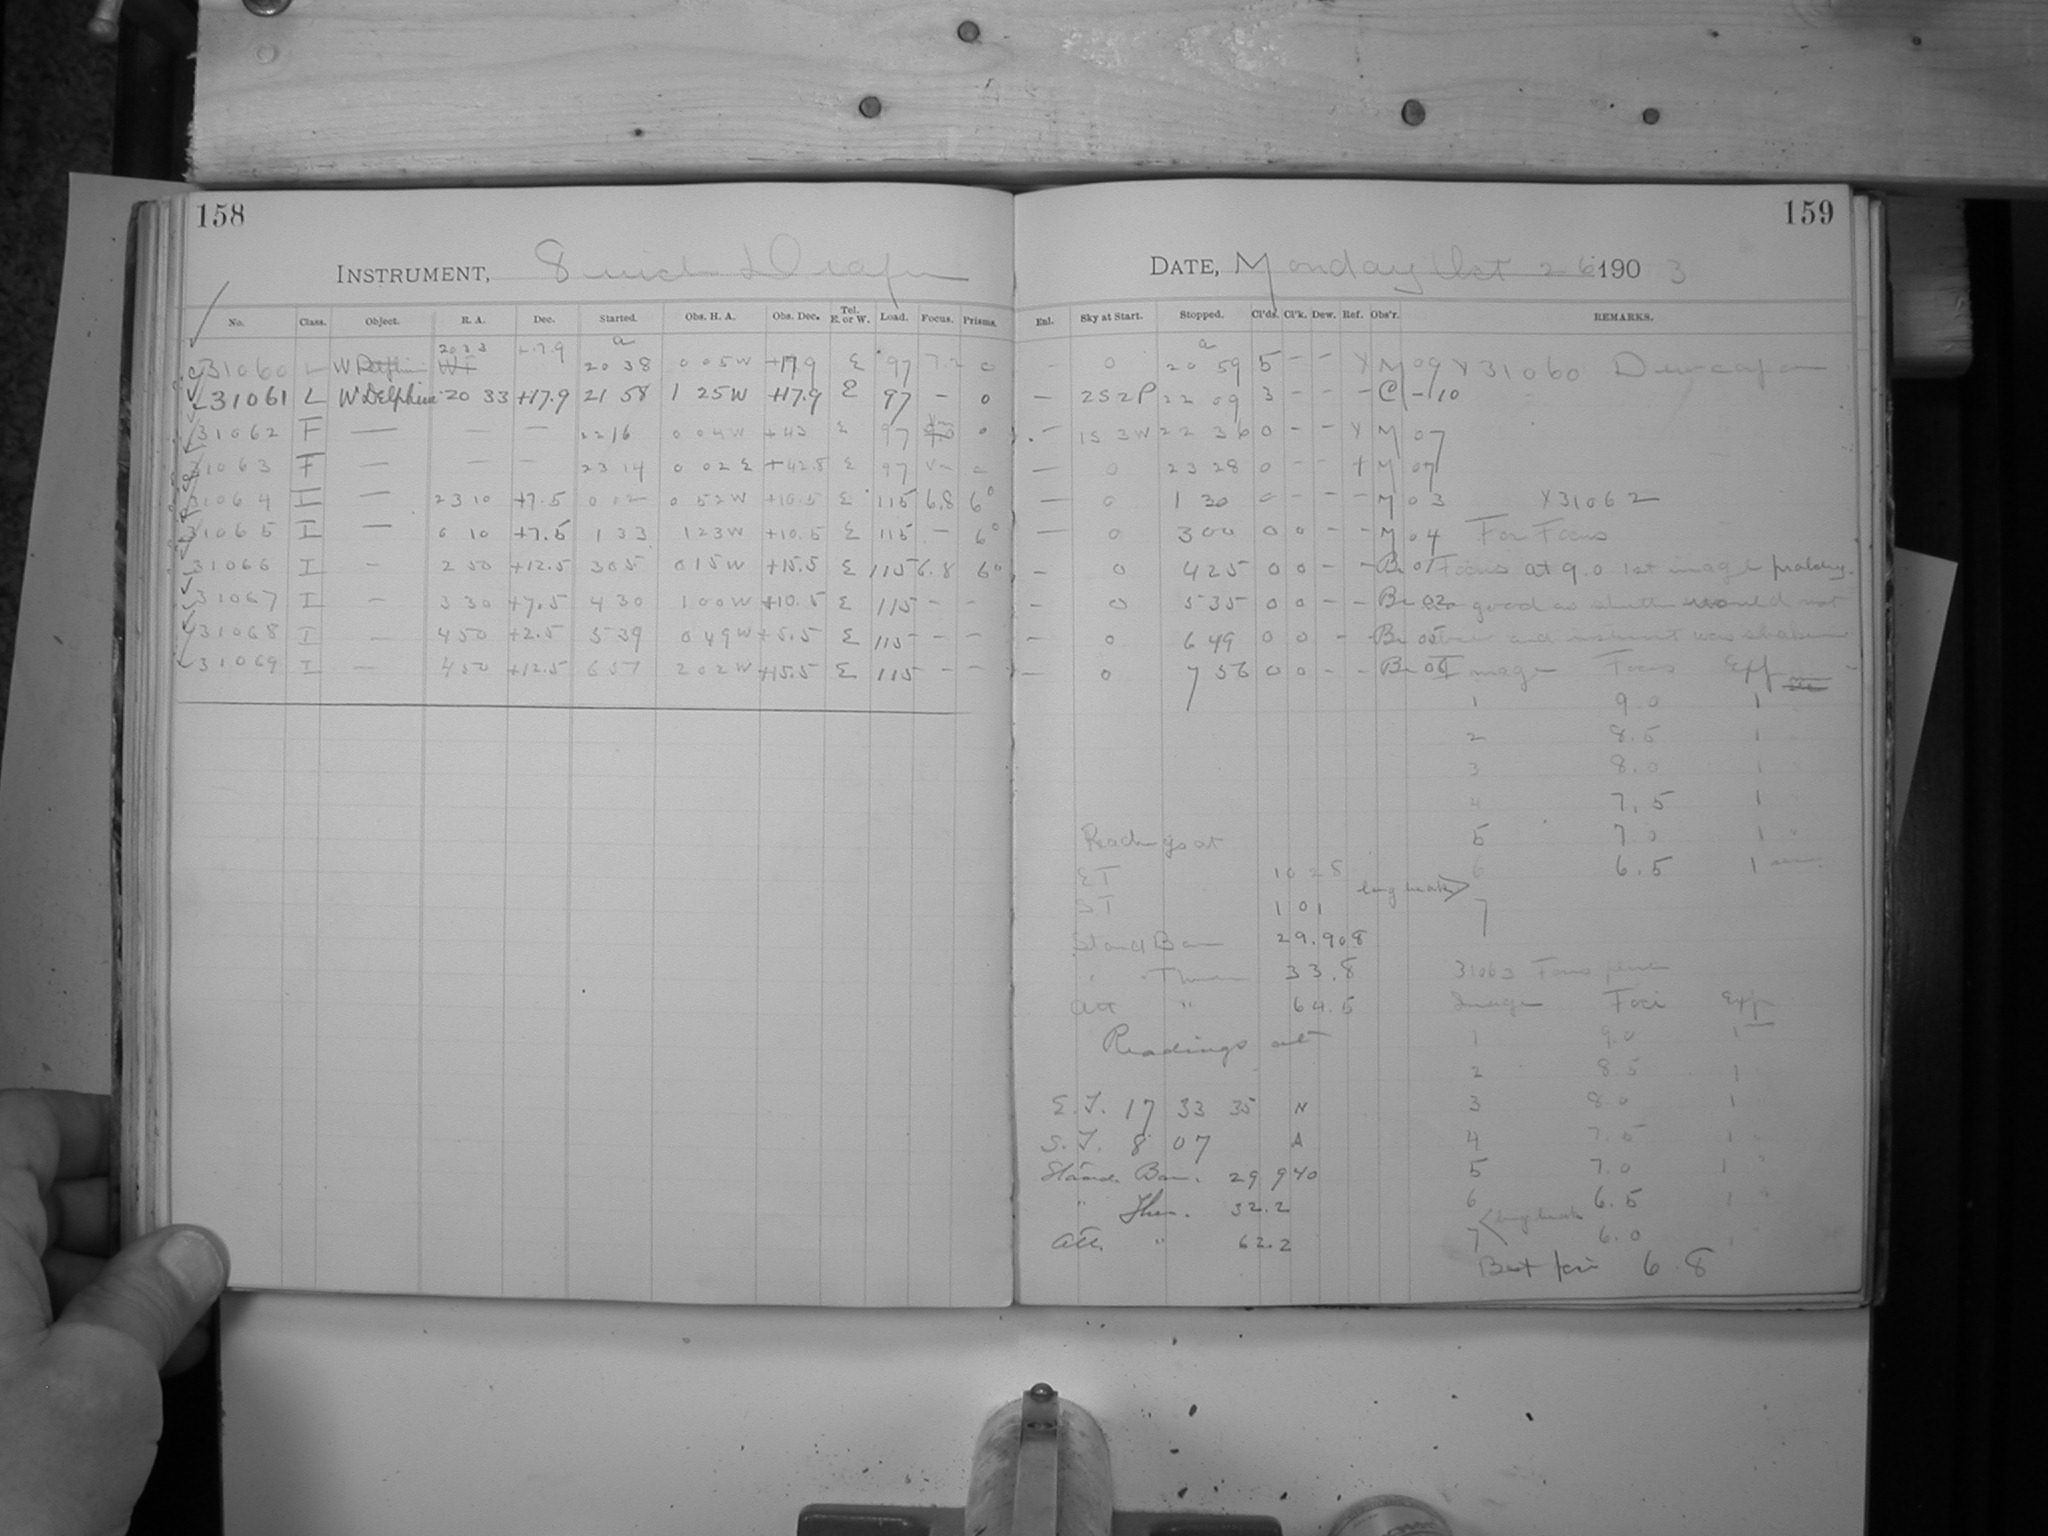 158
159
INSTRUMENT, 8 inch Draper
DATE, Monday Oct 26 1903
No. Class. Object. R. A. Dec. Started. Obs. H. A. Obs. Dec. Tel. E. or W. Load. Focus. Prisms.
Enl. Sky at Start. Stopped. Cl'ds. Cl'k. Dew. Ref. Obs'r. REMARKS.
31060 L W Delphini 20 33 +17.9 20 38 0 05 W +17.9 E 97 7.2 0 — 0 20 59 5 – – Y M 09 Y 31060 Dewcap on
31061 L W Delphini 20 33 +17.9 21 58 1 25 W +17.9 E 97 – 0 — 2S2P 22 09 3 – – – C – 10
31062 F — — — 22 16 0 04 W +43 E 97 0 — 1S 3W 22 36 0 – – Y M 07
31063 F — — — 23 14 0 02 E +42.8 E 97 — 0 23 28 0 – – M 07
31064 I — 23 10 +7.5 0 02 0 52 W +10.5 E 115 6.8 6° — 0 1 30 0 – – – M 03 Y31062
31065 I — 0 10 +7.5 1 33 1 23 W +10.5 E 115 – 6° — 0 3 00 0 0 – – M 04 For Focus
31066 I – 2 50 +12.5 3 05 0 15 W +15.5 E 115 6.8 6° – 0 4 25 0 0 – – Br 01 Focus at 9.0 1st image probably
31067 I — 3 30 +7.5 4 30 1 00 W +10.5 E 115 – – – 0 5 35 0 0 – – Br 02 good as shutter would not
31068 I — 4 50 +2.5 5 39 0 49 W +5.5 E 115 – – – 0 6 49 0 0 – – Br 05 and instrument was shaken
31069 I — 4 50 +12.5 6 57 2 02 W +15.5 E 115 – – – 0 7 56 0 0 – – Br 06 Image Focus Exp
1 9.0 1
2 8.5 1
3 8.0 1
4 7.5 1
Readings at 5 7.0 1 "
ET 10 28 long break 6 6.5 1
ST 1 01 7
Stand Bar 29.908
" Ther 33.8 31063 Focus plate
Att " 64.5 Image Foci Exp
Readings at 1 9.0 1
2 8.5 1
E. T. 17 33 35 N 3 8.0 1
S. T. 8 07 A 4 7.5 1
Stand. Bar. 29 940 5 7.0 1 "
" Ther. 32.2 6 6.5 1 "
Att. " 62.2 long break 7 6.0
Best foci 6.8